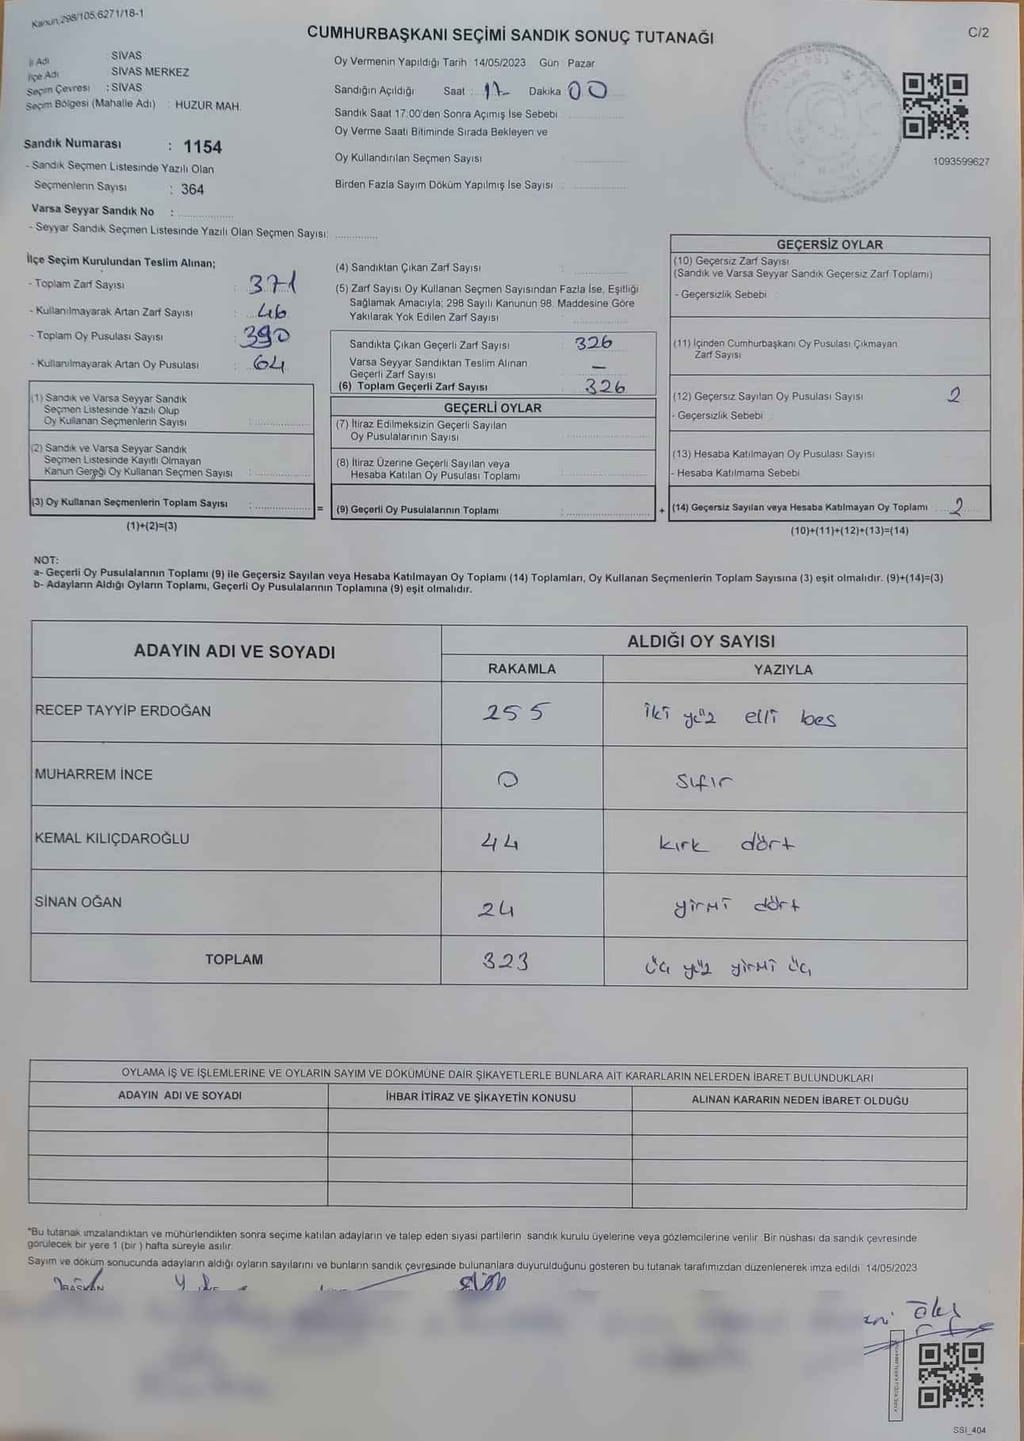 Kanun;298/105;6271/18-1
CUMHURBAŞKANI SEÇİMİ SANDIK SONUÇ TUTANAĞI
C/2
İl Adı : SİVAS
İlçe Adı SİVAS MERKEZ
Seçim Çevresi : SİVAS
Seçim Bölgesi (Mahalle Adı) : HUZUR MAH.
Sandık Numarası : 1154
- Sandık Seçmen Listesinde Yazılı Olan
Seçmenlerin Sayısı : 364
Varsa Seyyar Sandık No :
- Seyyar Sandık Seçmen Listesinde Yazılı Olan Seçmen Sayısı:
Oy Vermenin Yapıldığı Tarih 14/05/2023 Gün Pazar
Sandığın Açıldığı Saat : 17 Dakika 00
Sandık Saat 17:00'den Sonra Açımış İse Sebebi
Oy Verme Saati Bitiminde Sırada Bekleyen ve
Oy Kullandırılan Seçmen Sayısı
Birden Fazla Sayım Döküm Yapılmış İse Sayısı :
1093599627
İlçe Seçim Kurulundan Teslim Alınan;
- Toplam Zarf Sayısı : 371
- Kullanılmayarak Artan Zarf Sayısı : 46
- Toplam Oy Pusulası Sayısı : 390
- Kullanılmayarak Artan Oy Pusulası : 64
(1) Sandık ve Varsa Seyyar Sandık
Seçmen Listesinde Yazılı Olup
Oy Kullanan Seçmenlerin Sayısı :
(2) Sandık ve Varsa Seyyar Sandık
Seçmen Listesinde Kayıtlı Olmayan
Kanun Gereği Oy Kullanan Seçmen Sayısı :
(3) Oy Kullanan Seçmenlerin Toplam Sayısı :
(1)+(2)=(3)
=
(4) Sandıktan Çıkan Zarf Sayısı :
(5) Zarf Sayısı Oy Kullanan Seçmen Sayısından Fazla İse, Eşitliği
Sağlamak Amacıyla; 298 Sayılı Kanunun 98. Maddesine Göre
Yakılarak Yok Edilen Zarf Sayısı :
Sandıkta Çıkan Geçerli Zarf Sayısı : 326
Varsa Seyyar Sandıktan Teslim Alınan
Geçerli Zarf Sayısı : —
(6) Toplam Geçerli Zarf Sayısı : 326
GEÇERLİ OYLAR
(7) İtiraz Edilmeksizin Geçerli Sayılan
Oy Pusulalarının Sayısı :
(8) İtiraz Üzerine Geçerli Sayılan veya
Hesaba Katılan Oy Pusulası Toplamı :
(9) Geçerli Oy Pusulalarının Toplamı :
+
GEÇERSİZ OYLAR
(10) Geçersiz Zarf Sayısı
(Sandık ve Varsa Seyyar Sandık Geçersiz Zarf Toplamı)
- Geçersizlik Sebebi
(11) İçinden Cumhurbaşkanı Oy Pusulası Çıkmayan
Zarf Sayısı
(12) Geçersiz Sayılan Oy Pusulası Sayısı 2
- Geçersizlik Sebebi
(13) Hesaba Katılmayan Oy Pusulası Sayısı
- Hesaba Katılmama Sebebi
(14) Geçersiz Sayılan veya Hesaba Katılmayan Oy Toplamı 2
(10)+(11)+(12)+(13)=(14)
NOT:
a- Geçerli Oy Pusulalarının Toplamı (9) ile Geçersiz Sayılan veya Hesaba Katılmayan Oy Toplamı (14) Toplamları, Oy Kullanan Seçmenlerin Toplam Sayısına (3) eşit olmalıdır. (9)+(14)=(3)
b- Adayların Aldığı Oyların Toplamı, Geçerli Oy Pusulalarının Toplamına (9) eşit olmalıdır.
ADAYIN ADI VE SOYADI
ALDIĞI OY SAYISI
RAKAMLA YAZIYLA
RECEP TAYYİP ERDOĞAN 255 iki yüz elli bes
MUHARREM İNCE 0 sıfır
KEMAL KILIÇDAROĞLU 44 kırk dört
SİNAN OĞAN 24 yirmi dört
TOPLAM 323 üç yüz yirmi üç
OYLAMA İŞ VE İŞLEMLERİNE VE OYLARIN SAYIM VE DÖKÜMÜNE DAİR ŞİKAYETLERLE BUNLARA AİT KARARLARIN NELERDEN İBARET BULUNDUKLARI
ADAYIN ADI VE SOYADI İHBAR İTİRAZ VE ŞİKAYETİN KONUSU ALINAN KARARIN NEDEN İBARET OLDUĞU
*Bu tutanak imzalandıktan ve mühürlendikten sonra seçime katılan adayların ve talep eden siyasi partilerin sandık kurulu üyelerine veya gözlemcilerine verilir. Bir nüshası da sandık çevresinde
görülecek bir yere 1 (bir ) hafta süreyle asılır.
Sayım ve döküm sonucunda adayların aldığı oyların sayılarını ve bunların sandık çevresinde bulunanlara duyurulduğunu gösteren bu tutanak tarafımızdan düzenlenerek imza edildi. 14/05/2023
BAŞKAN
SSI_404